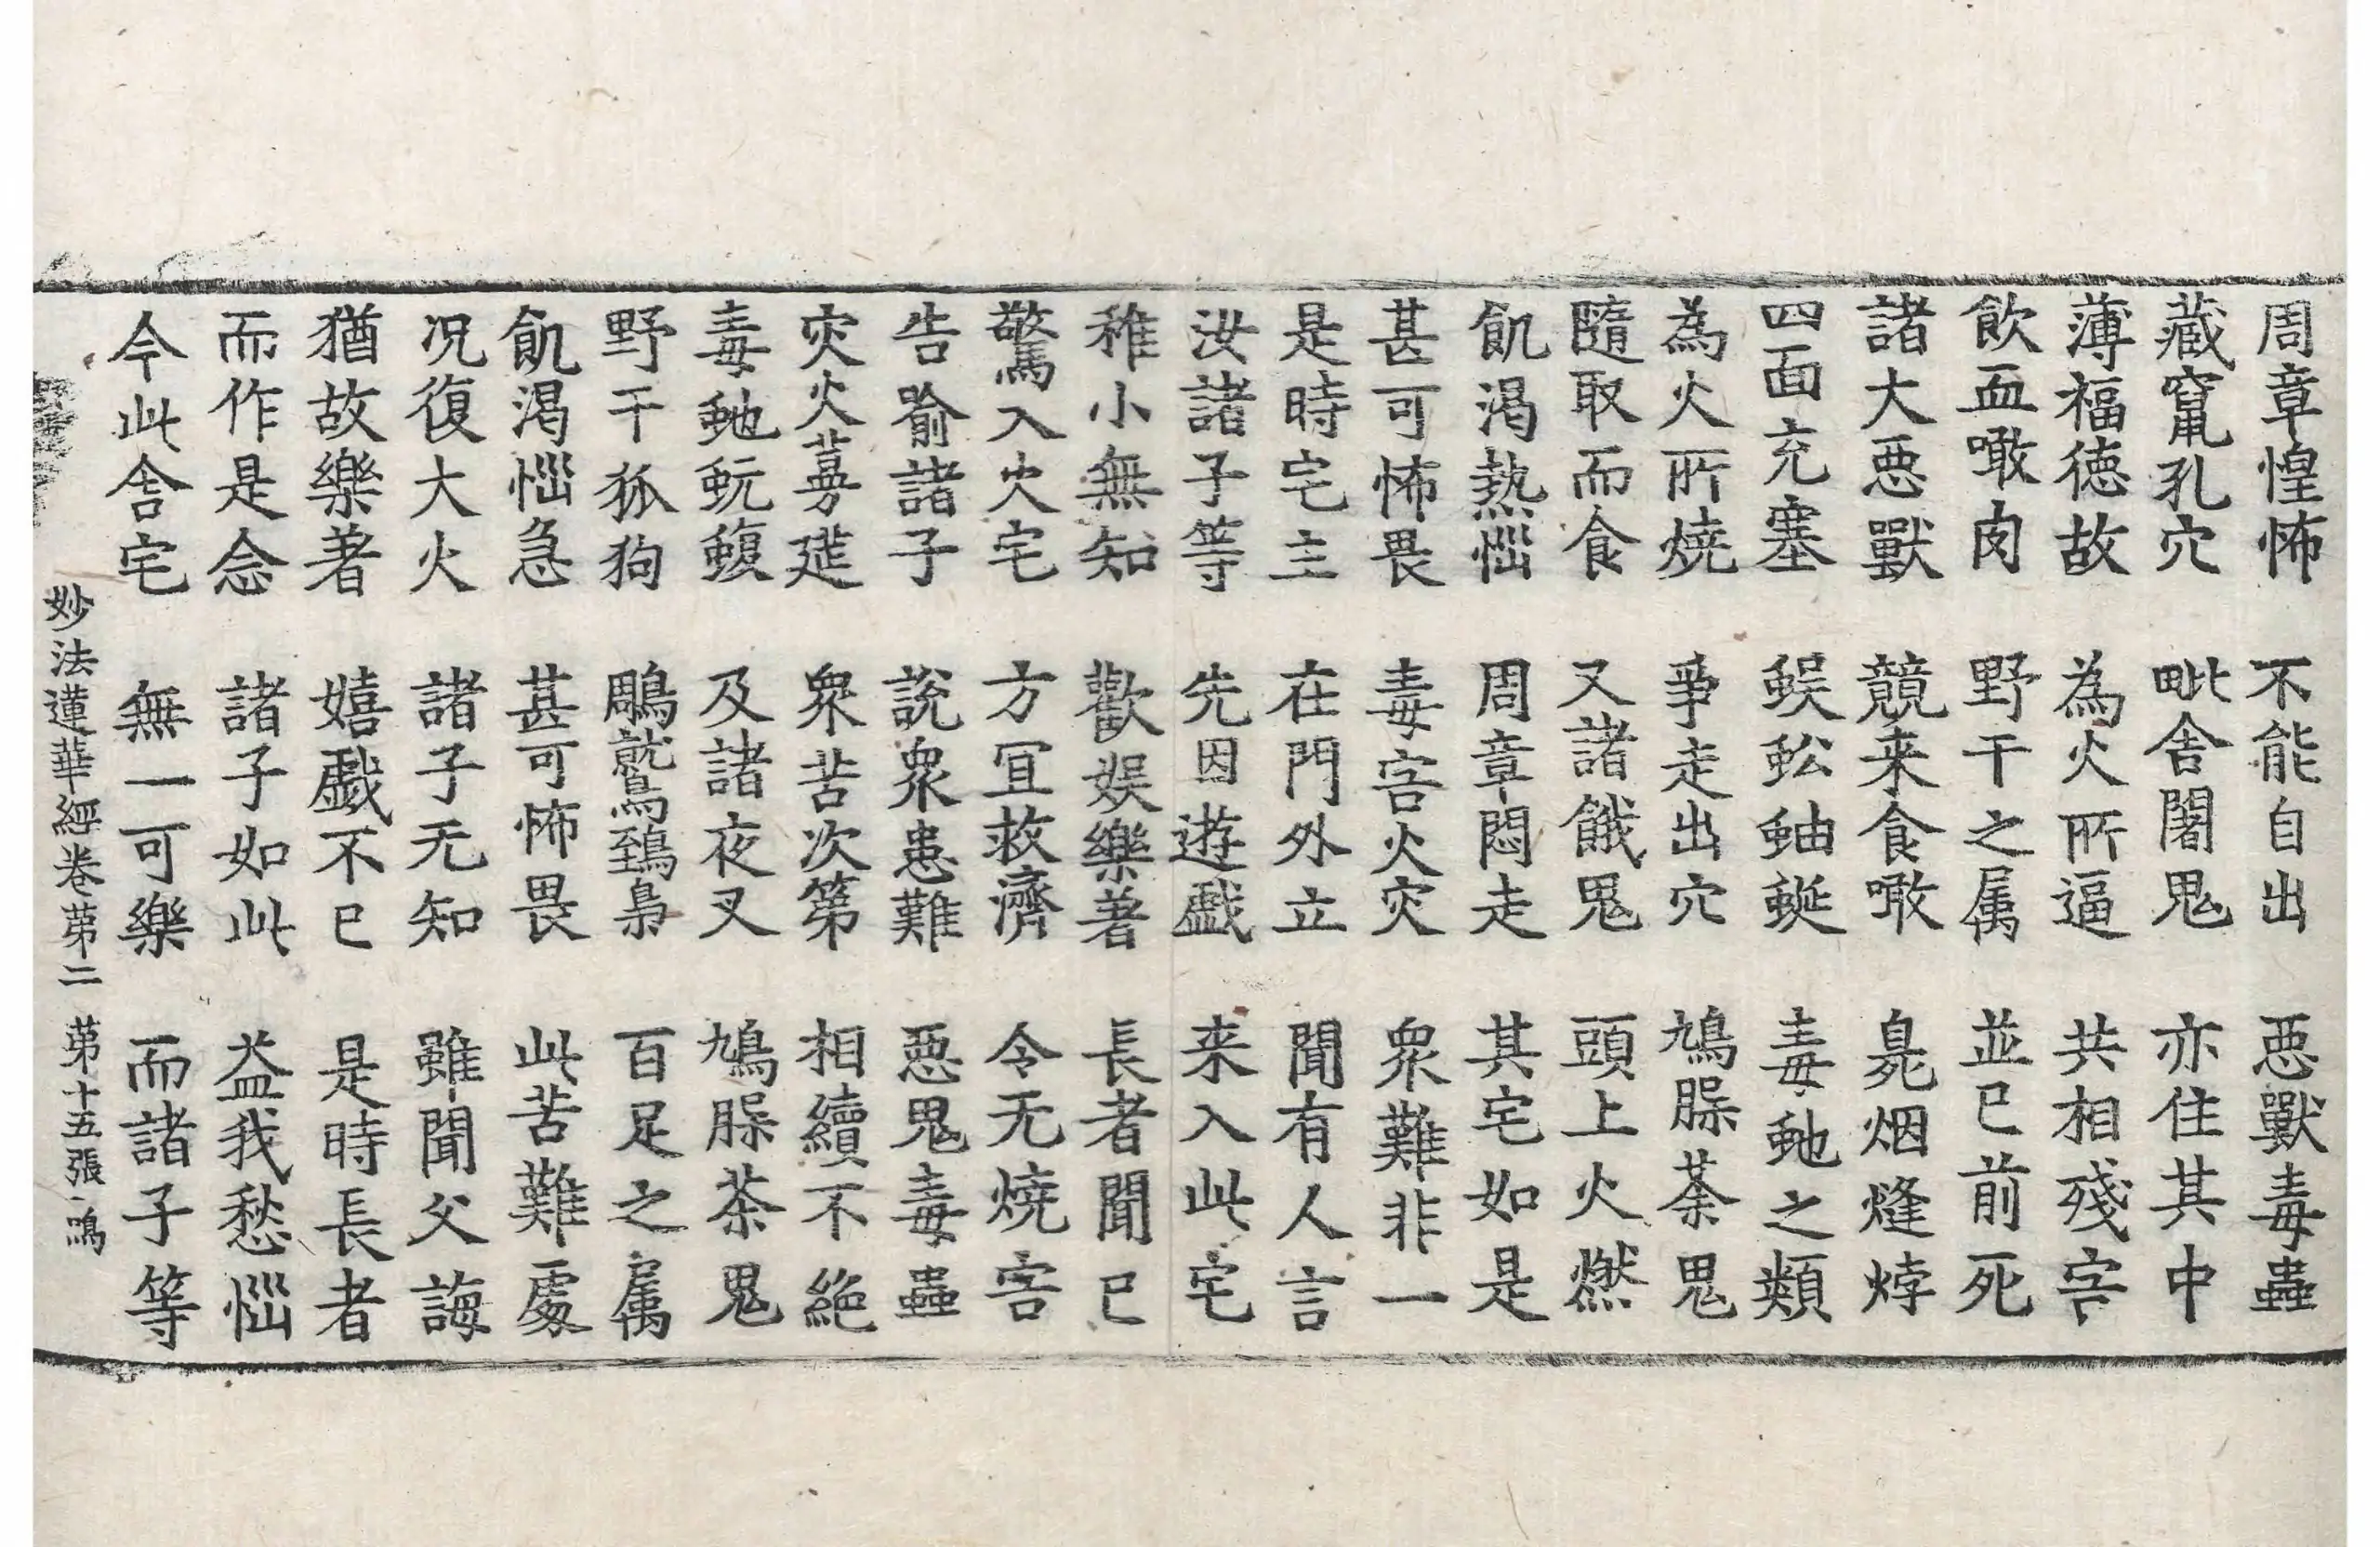 周章惶怖 不能自出 惡獸毒蟲
藏竄孔穴 毗舍闍鬼 亦住其中
薄福德故 為火所逼 共相殘害
飲血噉肉 野干之属 並已前死
諸大惡獸 競来食噉 臰烟熢㶿
四面充塞 蜈蚣蚰蜒 毒虵之類
為火所燒 爭走出穴 鳩槃荼鬼
隨取而食 又諸餓鬼 頭上火燃
飢渴熱惱 周章悶走 其宅如是
甚可怖畏 毒害火灾 衆難非一
是時宅主 在門外立 聞有人言
汝諸子等 先因遊戲 来入此宅
稚小無知 歡娛樂著 長者聞已
驚入火宅 方冝救濟 令无燒害
告喻諸子 說衆患難 惡鬼毒蟲
灾火蔓莚 衆苦次第 相續不絕
毒虵蚖蝮 及諸夜叉 鳩槃荼鬼
野干狐狗 鵰鷲鵄梟 百足之属
飢渴惱急 甚可怖畏 此苦難處
况復大火 諸子无知 雖聞父誨
猶故樂著 嬉戲不已 是時長者
而作是念 諸子如此 益我愁惱
今此舍宅 無一可樂 而諸子等
妙法蓮華經卷第二 第十五張